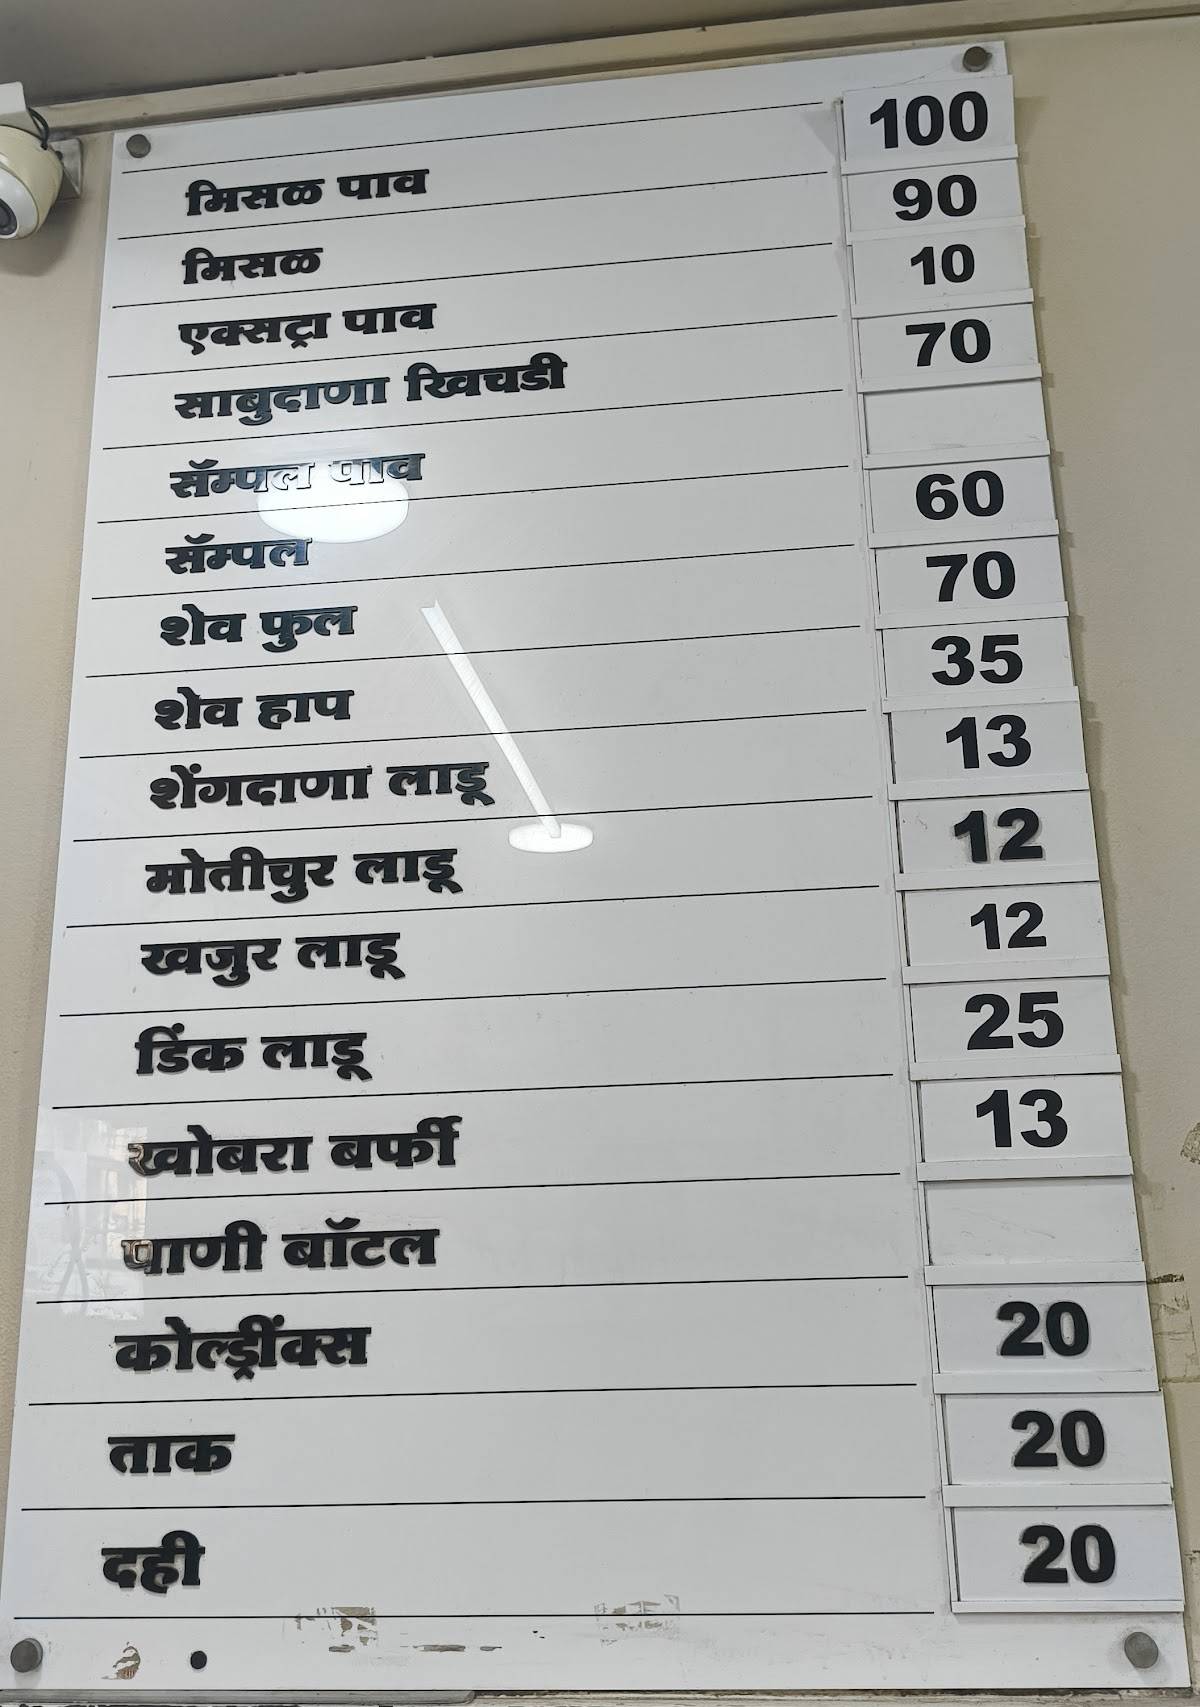 मिसळ पाव 100
मिसळ 90
एक्सट्रा पाव 10
साबुदाणा खिचडी 70
सॅम्पल पाव
सॅम्पल 60
शेव फुल 70
शेव हाप 35
शेंगदाणा लाडू 13
मोतीचुर लाडू 12
खजुर लाडू 12
डिंक लाडू 25
खोबरा बर्फी 13
पाणी बॉटल
कोल्ड्रींक्स 20
ताक 20
दही 20